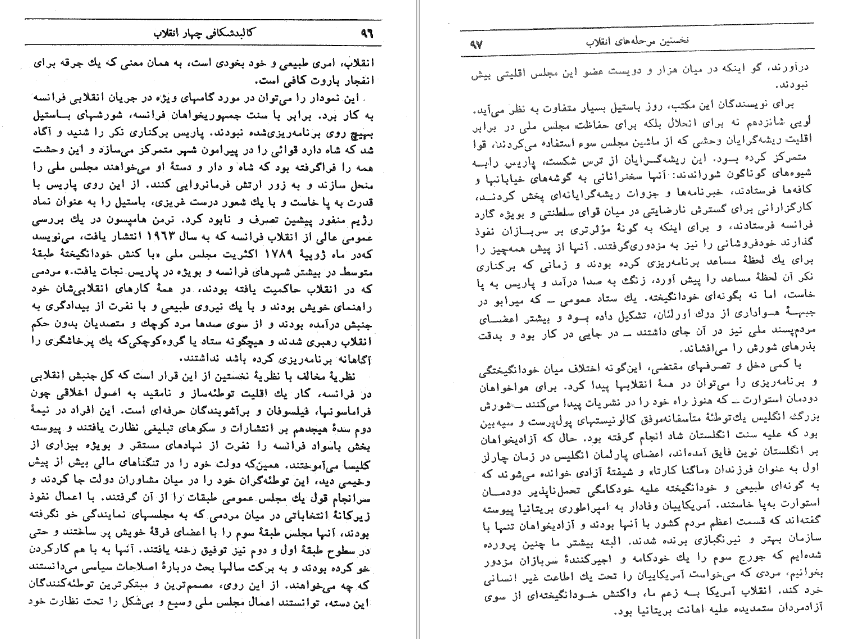 ۹۶ کالبدشکافی چهار انقلاب
انقلاب، امری طبیعی و خود بخودی است، به همان معنی که یك جرقه برای
انفجار باروت کافی است.
این نمودار را می‌توان در مورد گامهای ویژه در جریان انقلابی فرانسه
به کار برد. برابر با سنت جمهوریخواهان فرانسه، شورشهای باستیل
بهیچ روی برنامه‌ریزی‌شده نبودند. پاریس برکناری نکر را شنید و آگاه
شد که شاه دارد قوائی را در پیرامون شهر متمرکز می‌سازد و این وحشت
همه را فراگرفته بود که شاه و دار و دستهٔ او می‌خواهند مجلس ملی را
منحل سازند و به زور ارتش فرمانروایی کنند. از این روی پاریس با
قدرت به پا خاست و با یك شعور درست غریزی، باستیل را به عنوان نماد
رژیم منفور پیشین تصرف و نابود کرد. نرمن هامپسون در یك بررسی
عمومی عالی از انقلاب فرانسه که به سال ۱۹۶۳ انتشار یافت، می‌نویسد
که«در ماه ژوییهٔ ۱۷۸۹ اکثریت مجلس ملی «با کنش خودانگیختهٔ طبقهٔ
متوسط در بیشتر شهرهای فرانسه و بویژه در پاریس نجات یافت.» مردمی
که در انقلاب حاکمیت یافته بودند، در همهٔ کارهای انقلابی‌شان خود
راهنمای خویش بودند و با یك نیروی طبیعی و با نفرت از بیدادگری به
جنبش درآمده بودند و از سوی صدها مرد کوچك و متصدیان بدون حکم
انقلاب رهبری شدند و هیچگونه ستاد یا گروه‌کوچکی‌که یك پرخاشگری را
آگاهانه برنامه‌ریزی کرده باشد نداشتند.
نظریهٔ مخالف با نظریهٔ نخستین از این قرار است که کل جنبش انقلابی
در فرانسه، کار یك اقلیت توطئه‌ساز و نامقید به اصول اخلاقی چون
فراماسونها، فیلسوفان و برآشویندگان حرفه‌ای است. این افراد در نیمهٔ
دوم سدهٔ هیجدهم بر انتشارات و سکوهای تبلیغی نظارت یافتند و پیوسته
بخش باسواد فرانسه را نفرت از نهادهای مستقر و بویژه بیزاری از
کلیسا می‌آموختند. همین‌که دولت خود را در تنگناهای مالی بیش از پیش
وخیمی دید، این توطئه‌گران خود را در میان مشاوران دولت جا کردند و
سرانجام قول یك مجلس عمومی طبقات را از آن گرفتند. با اعمال نفوذ
زیرکانهٔ انتخاباتی در میان مردمی که به مجلسهای نمایندگی خو نگرفته
بودند، آنها مجلس طبقهٔ سوم را با اعضای فرقهٔ خویش پر ساختند و حتی
در سطوح طبقهٔ اول و دوم نیز توفیق رخنه یافتند. آنها به با هم کارکردن
خو کرده بودند و به برکت سالها بحث دربارهٔ اصلاحات سیاسی می‌دانستند
که چه می‌خواهند. از این روی، مصمم‌ترین و مبتکرترین توطئه‌کنندگان
این دسته، توانستند اعمال مجلس ملی وسیع و بی‌شکل را تحت نظارت خود
نخستین مرحله‌های انقلاب ۹۷
درآورند، گو اینکه در میان هزار و دویست عضو این مجلس اقلیتی بیش
نبودند.
برای نویسندگان این مکتب، روز باستیل بسیار متفاوت به نظر می‌آید.
لویی شانزدهم نه برای انحلال بلکه برای حفاظت مجلس ملی در برابر
اقلیت ریشه‌گرایان وحشی که از ماشین مجلس سوء استفاده می‌کردند، قوا
متمرکز کرده بود. این ریشه‌گرایان از ترس شکست، پاریس را به
شیوه‌های گوناگون شوراندند: آنها سخنرانانی به گوشه‌های خیابانها و
کافه‌ها فرستادند، خبرنامه‌ها و جزوات ریشه‌گرایانه‌ای پخش کردند،
کارگزارانی برای گسترش نارضایتی در میان قوای سلطنتی و بویژه گارد
فرانسه فرستادند، و برای اینکه به گونهٔ مؤثرتری بر سربازان نفوذ
گذارند خودفروشانی را نیز به مزدوری‌گرفتند. آنها از پیش همه‌چیز را
برای یك لحظهٔ مساعد برنامه‌ریزی کرده بودند و زمانی که برکناری
نکر آن لحظهٔ مساعد را پیش آورد، زنگ به صدا درآمد و پاریس به پا
خاست، اما نه بگونه‌ای خودانگیخته. یك ستاد عمومی ــ که میرابو در
جبههٔ هواداری از دوك اورلئان، تشکیل داده بود و بیشتر اعضای
مردم‌پسند ملی نیز در آن جای داشتند ــ در جایی در کار بود و بدقت
بذرهای شورش را می‌افشاند.
با کمی دخل و تصرفهای مقتضی، این‌گونه اختلاف میان خودانگیختگی
و برنامه‌ریزی را می‌توان در همهٔ انقلابها پیدا کرد. برای هواخواهان
دودمان استوارت ــ که هنوز راه خود را در نشریات پیدا می‌کنند ــ شورش
بزرگ انگلیس یك‌توطئهٔ متأسفانه‌موفق کالونیستهای پول‌پرست و سیه‌بین
بود که علیه سنت انگلستان شاد انجام گرفته بود. حال که آزادیخواهان
بر انگلستان نوین فایق آمده‌اند، اعضای پارلمان انگلیس در زمان چارلز
اول به عنوان فرزندان «ماگنا کارتا» و شیفتهٔ آزادی خوانده می‌شوند که
به گونه‌ای طبیعی و خودانگیخته علیه خودکامگی تحمل‌ناپذیر دودمان
استوارت به‌پا خاستند. آمریکاییان وفادار به امپراطوری بریتانیا پیوسته
گفته‌اند که قسمت اعظم مردم کشور با آنها بودند و آزادیخواهان تنها با
سازمان بهتر و نیرنگبازی برنده شدند. البته بیشتر ما چنین پرورده
شده‌ایم که جورج سوم را یك خودکامه و اجیرکنندهٔ سربازان مزدور
بخوانیم، مردی که می‌خواست آمریکاییان را تحت یك اطاعت غیر انسانی
خرد کند. انقلاب آمریکا به زعم ما، واکنش خودانگیخته‌ای از سوی
آزادمردان ستمدیده علیه اهانت بریتانیا بود.